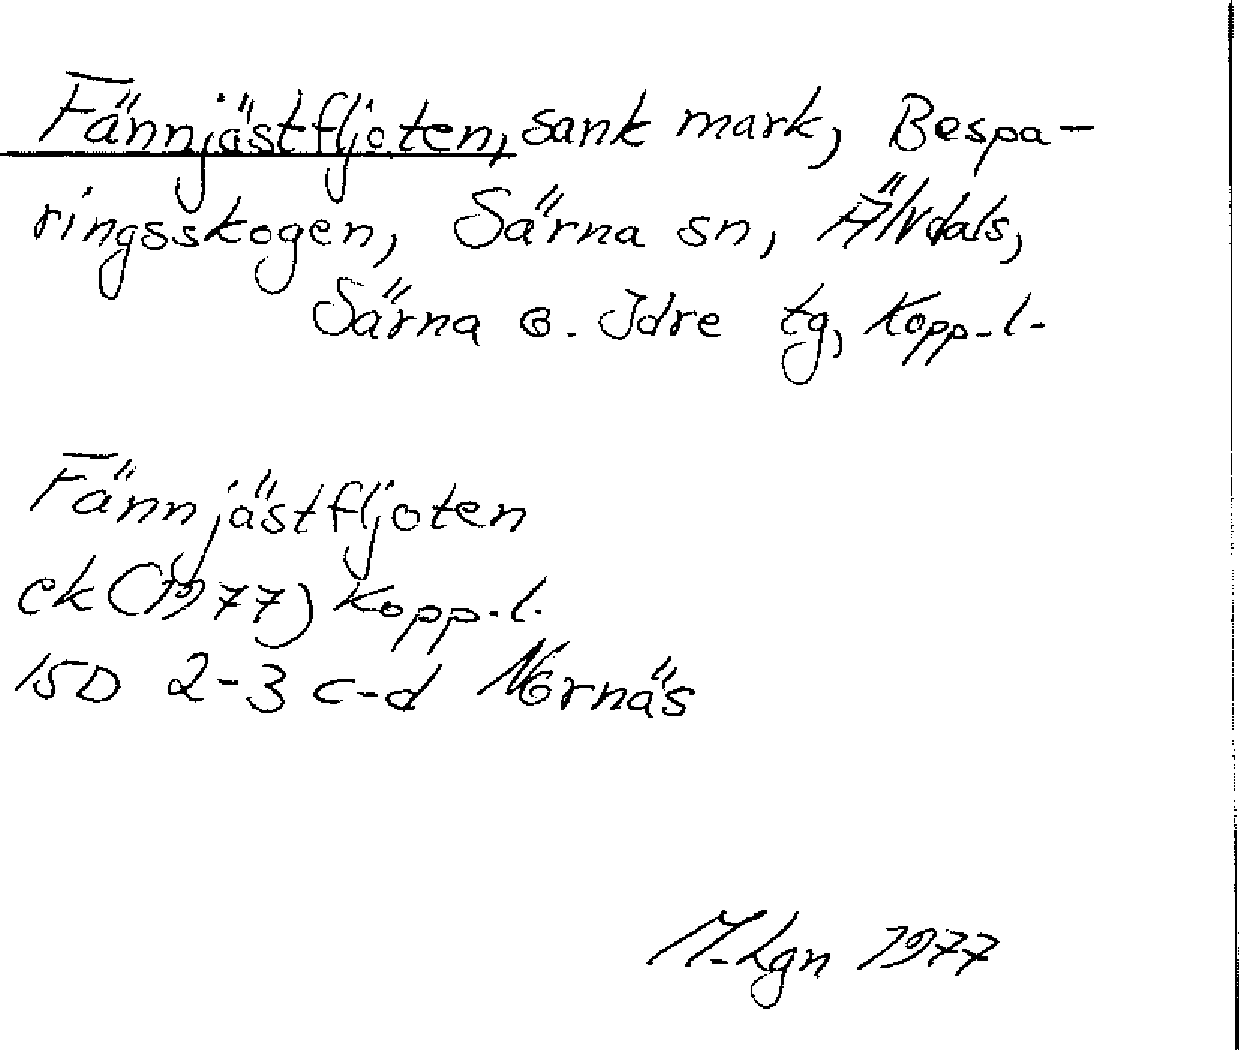 Fännjästfljoten, sank mark, Bespa-
ringsskogen, Särna sn, Älvdals,
Särna o. Idre tg, Kopp.l.
Fännjästfljoten
ek (1977) Kopp.l.
15D 2-3 c-d Nornäs
M.Lgn 1977